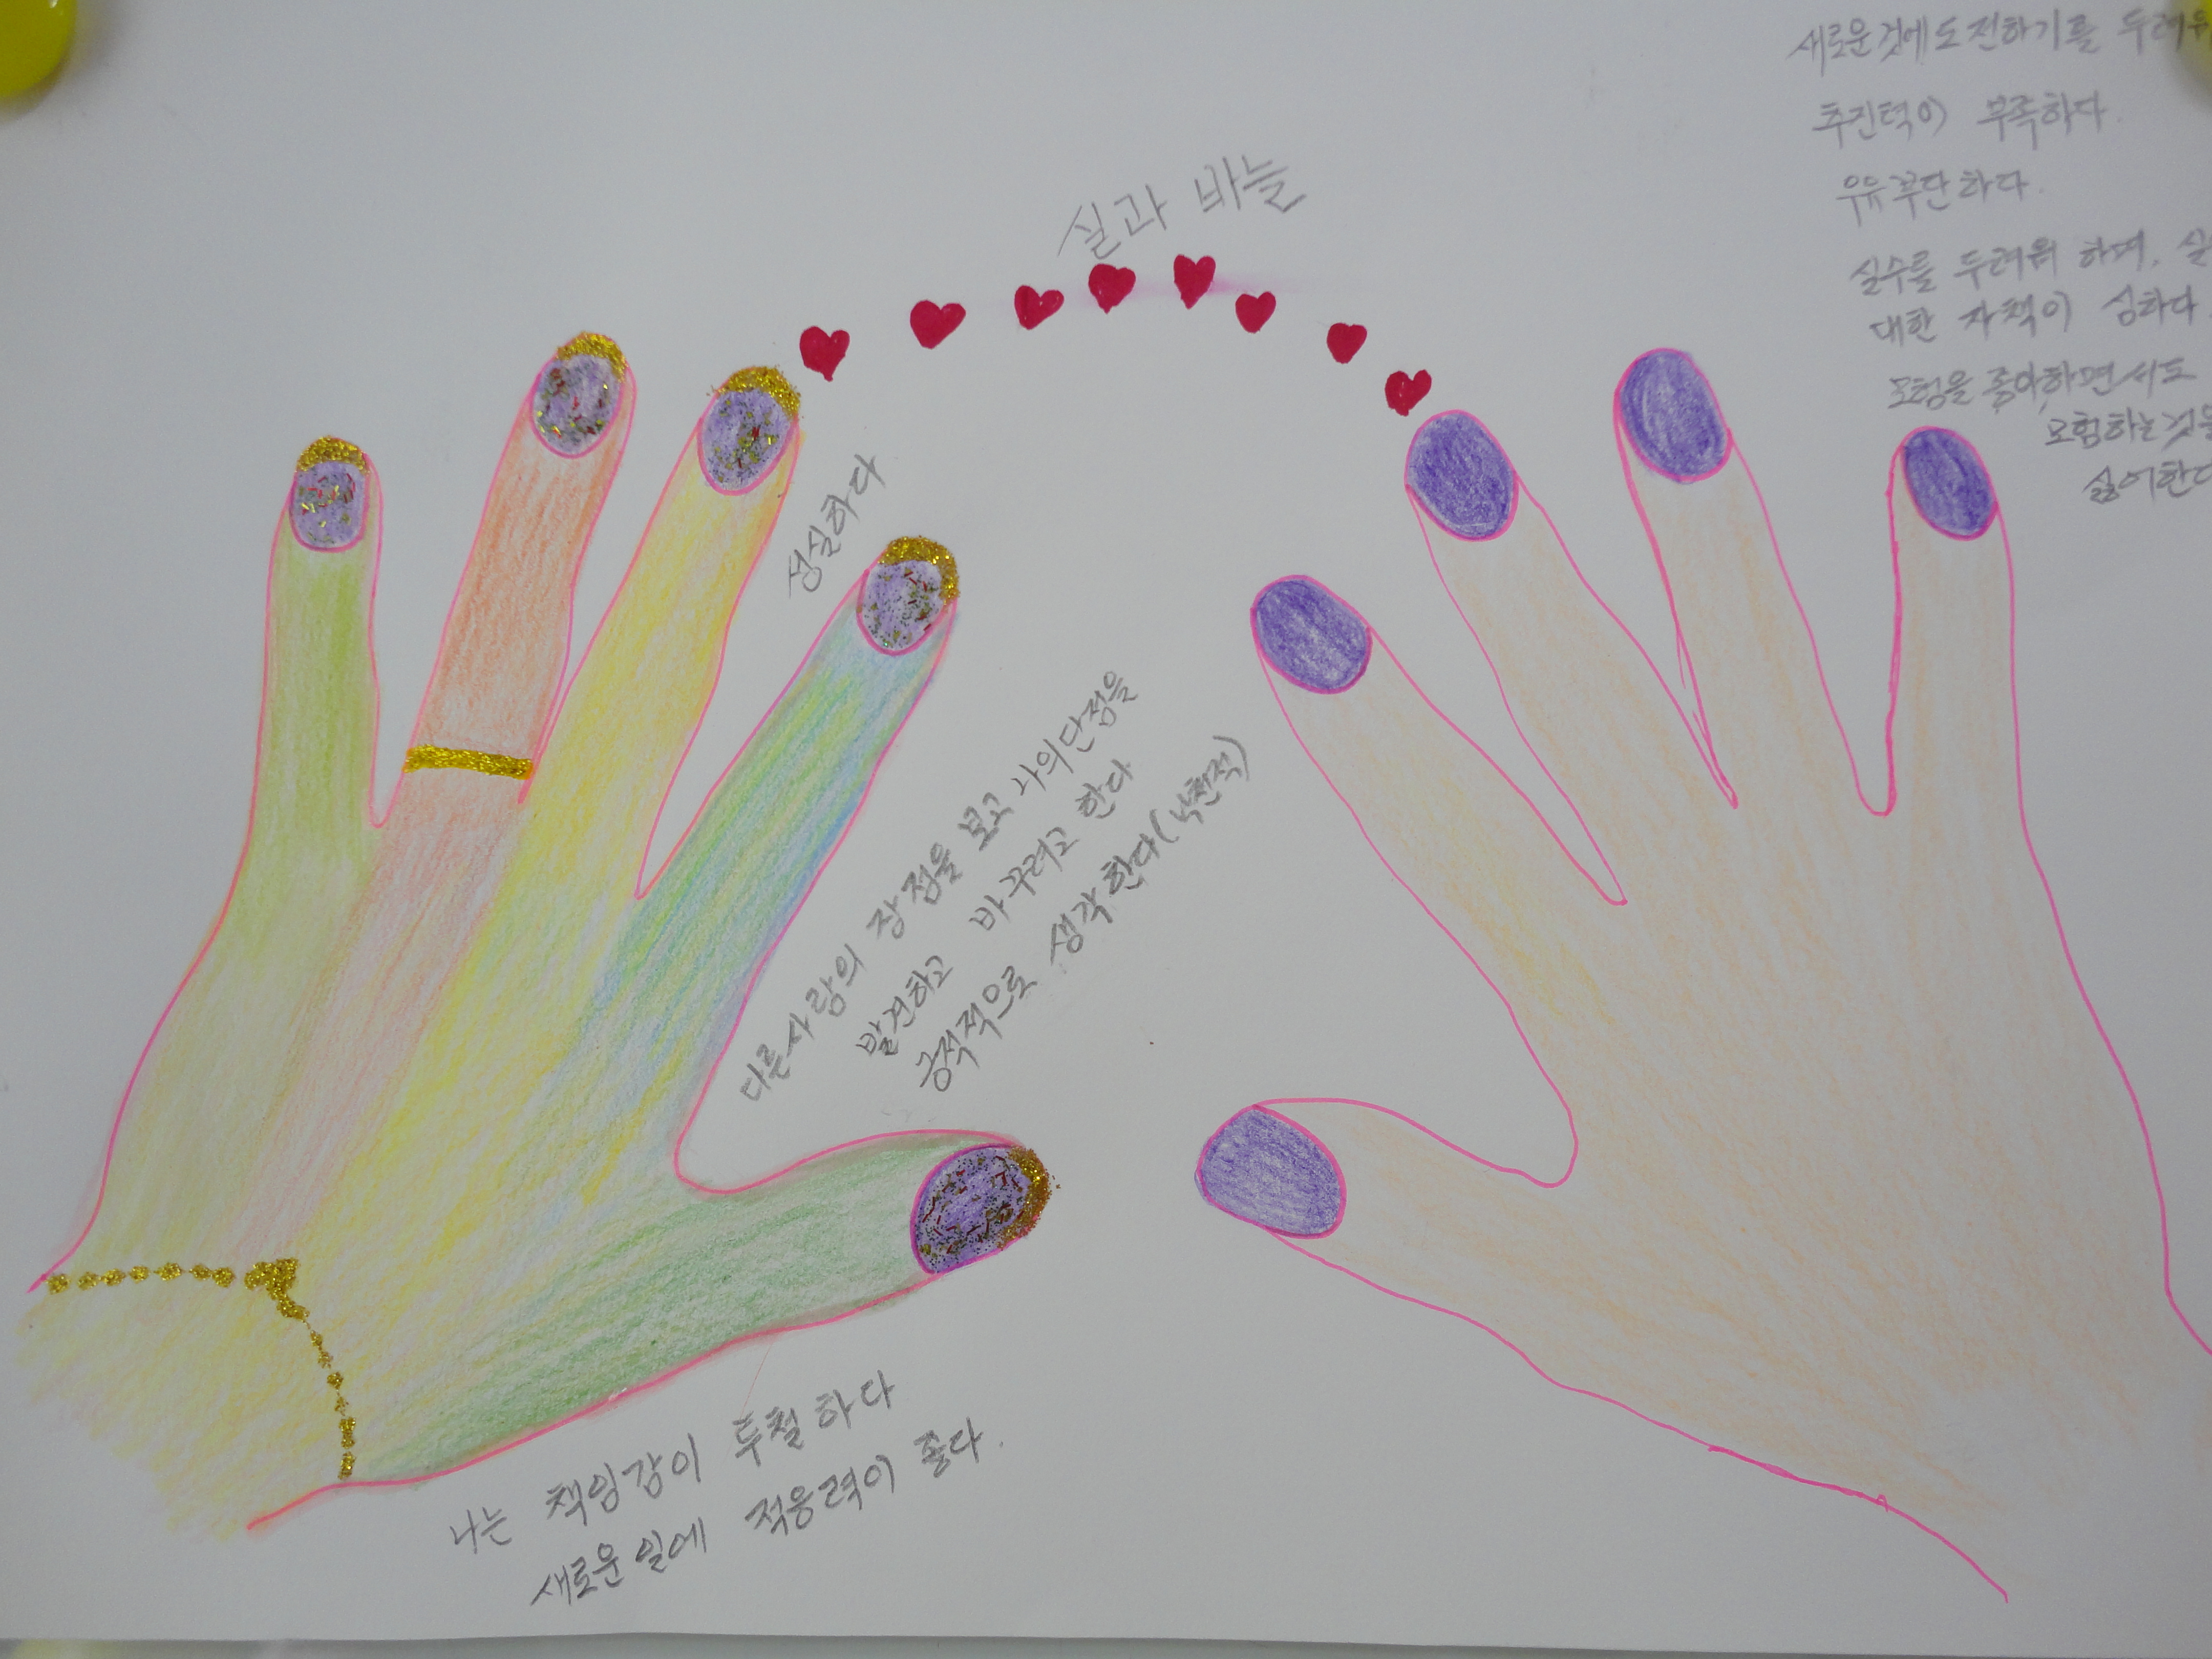 실과 바늘
성실하다
다른사람의 장점을 보고 나의단점을
발견하고 바꾸려고 한다
긍적적으로 생각한다(낙천적)
나는 책임감이 투철하다
새로운일에 적응력이 좋다.
새로운것에도전하기를
추진력이 부족하다.
우유부단하다.
실수를 두려워 하며.
대한 자책이 심하다
모험을 좋아하면서도
모험하는것을
싫어한다